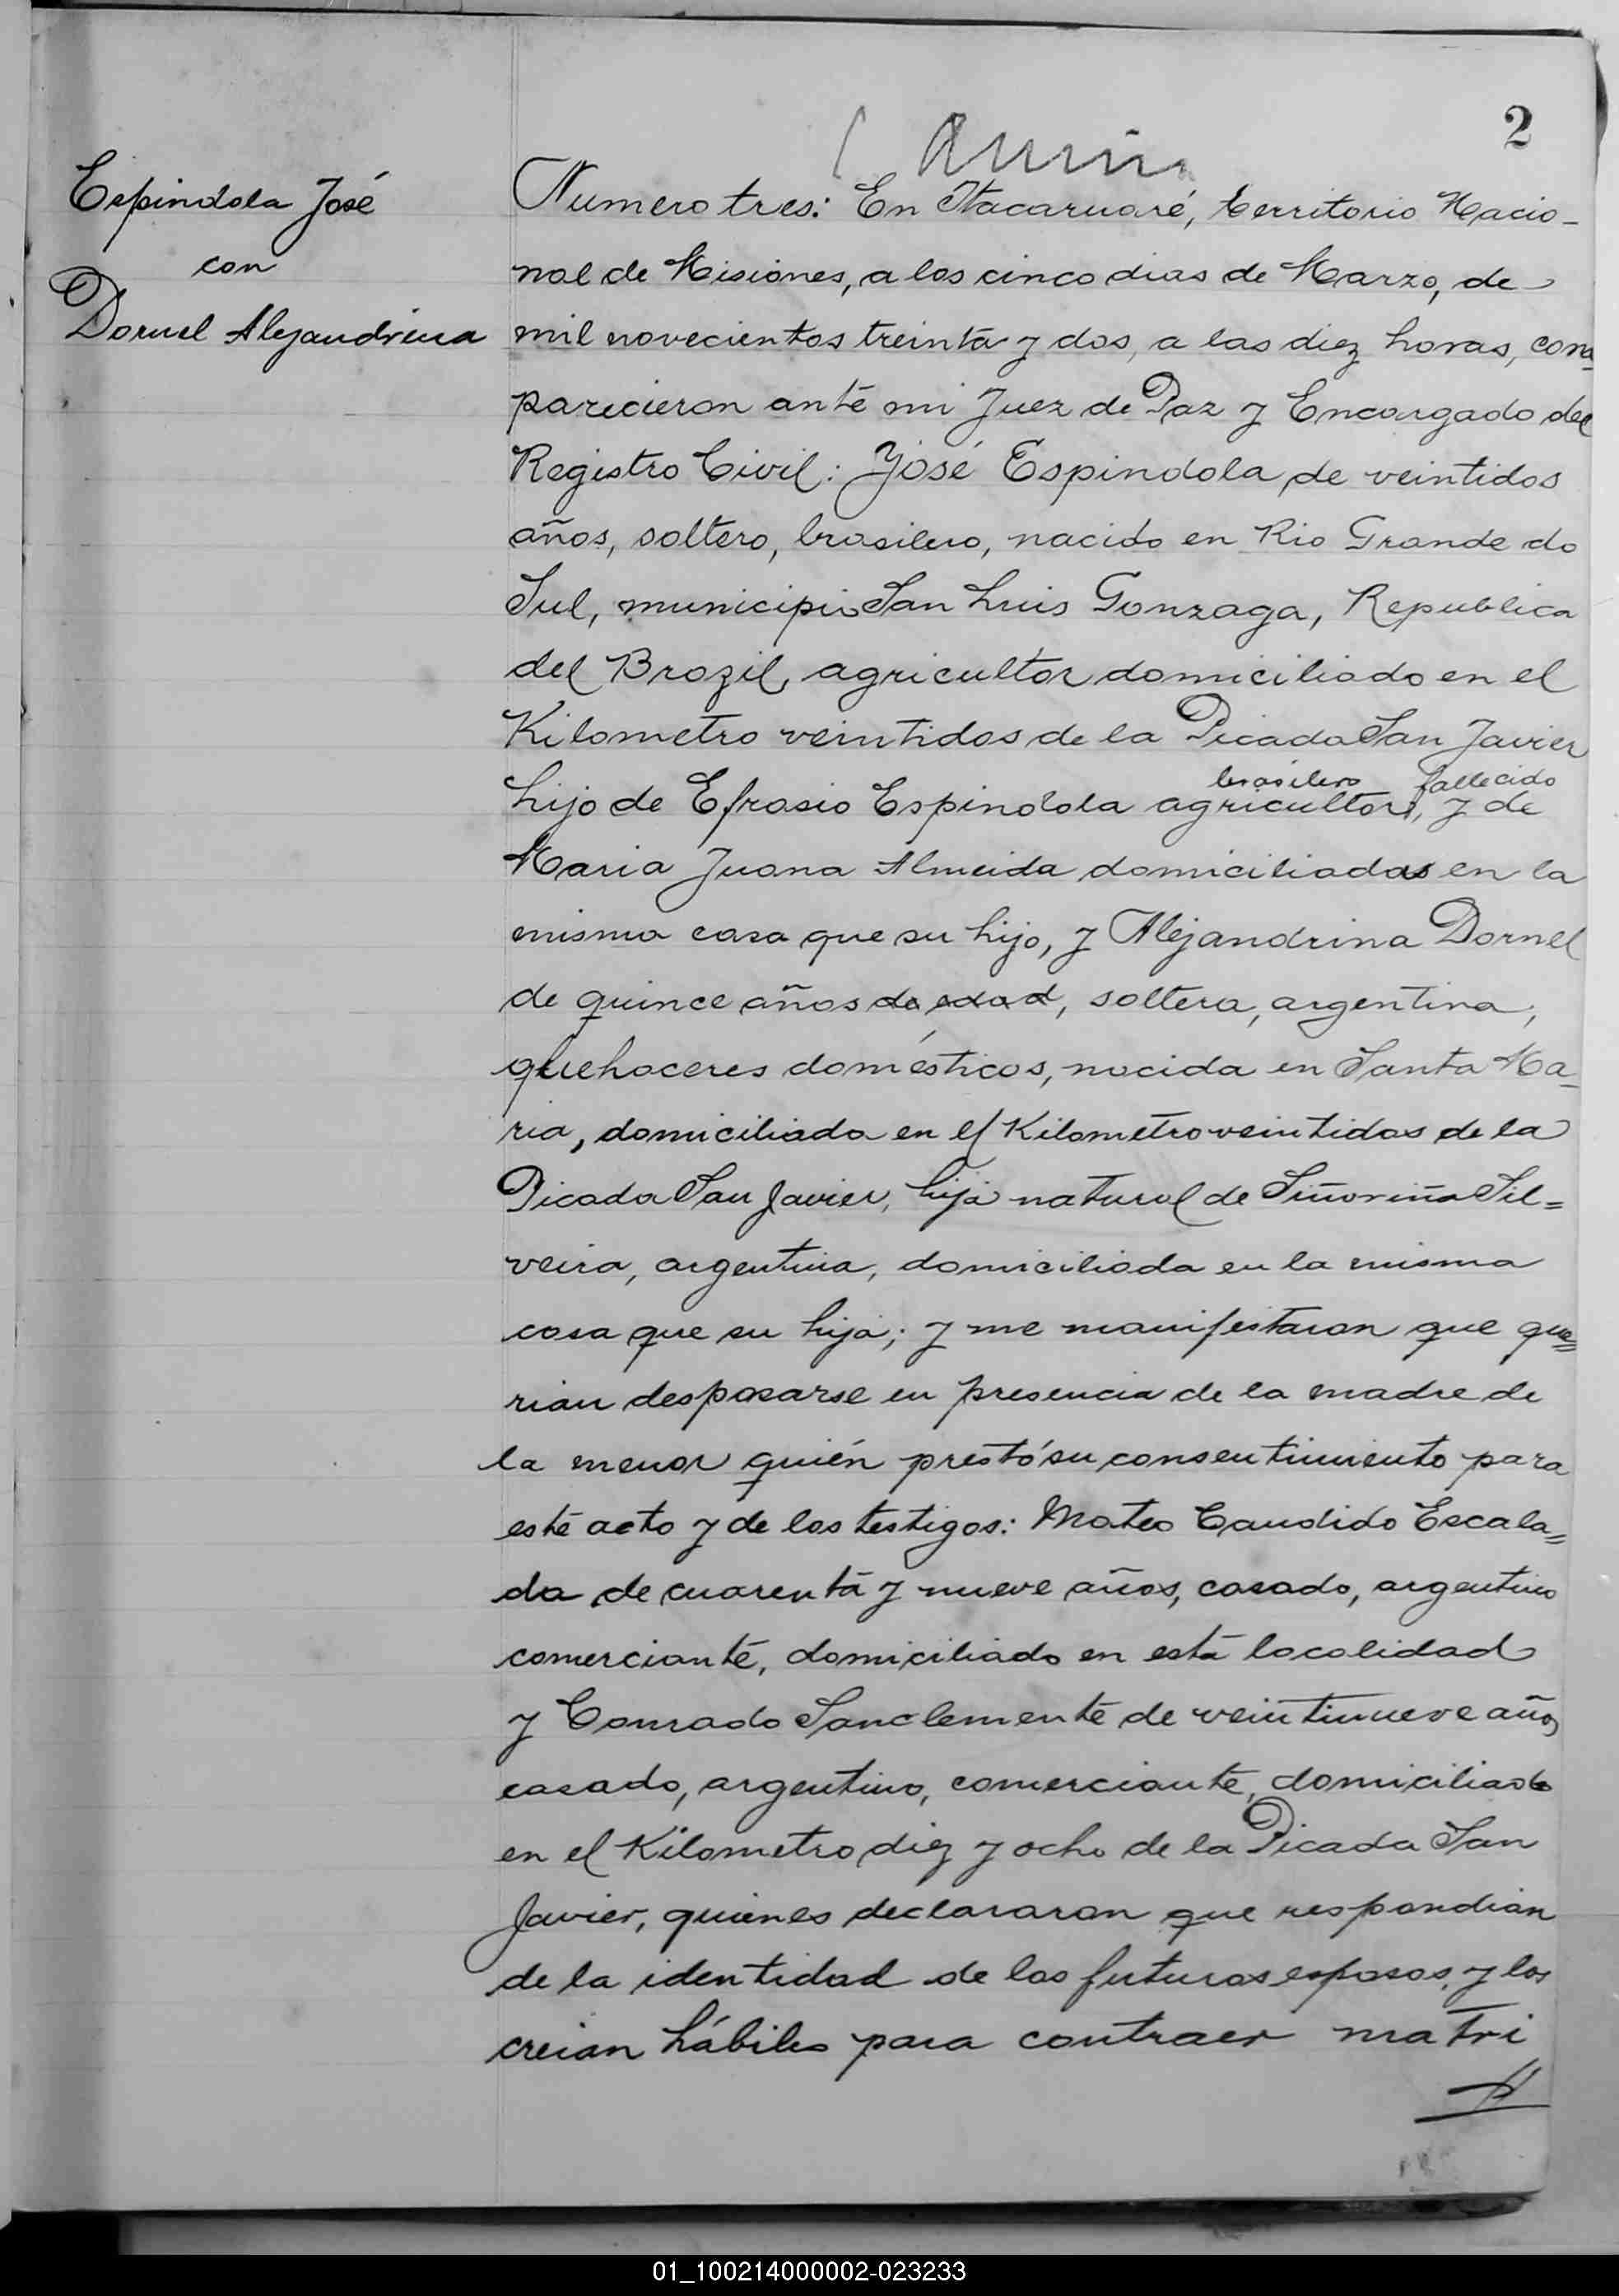 2
Espindola José
con
Dornel Alejandrina
Numero tres: En Itacaruaré, territorio Nacio-
nal de Misiones, a los cinco dias de Marzo, de
mil novecientos treinta y dos, a las diez horas, com-
parecieron ante mi Juez de Paz y Encargado del
Registro Civil: José Espindola de veintidos
años, soltero, brasilero, nacido en Rio Grande do
Sul, municipio San Luis Gonzaga, Republica
del Brazil, agricultor domiciliado en el
Kilometro veintidos de la Picada San Javier
brasilero fallecido
hijo de Efrosio Espindola agricultor, y de
Maria Juana Almeida domiciliados en la
misma casa que su hijo, y Alejandrina Dornel
de quince años de edad, soltera, argentina,
quehaceres domésticos, nacida en Santa Ma-
ria, domiciliada en el Kilometro veintidos de la
Picada San Javier, hija natural de Siñoriña Sil=
veira, argentina, domiciliada en la misma
casa que su hija; y me manifestaron que que=
rian desposarse en presencia de la madre de
la menor quién prestó su consentimiento para
este acto y de los testigos: Mateo Candido Escala=
da de cuarenta y nueve años, casado, argentino
comerciante, domiciliado en esta localidad
y Conrado Sanclemente de veintinueve años
casado, argentino, comerciante, domiciliado
en el Kilometro diez y ocho de la Picada San
Javier, quienes declararon que respondian
de la identidad de los futuros esposos, y los
creian hábiles para contraer matri
01_100214000002-023233